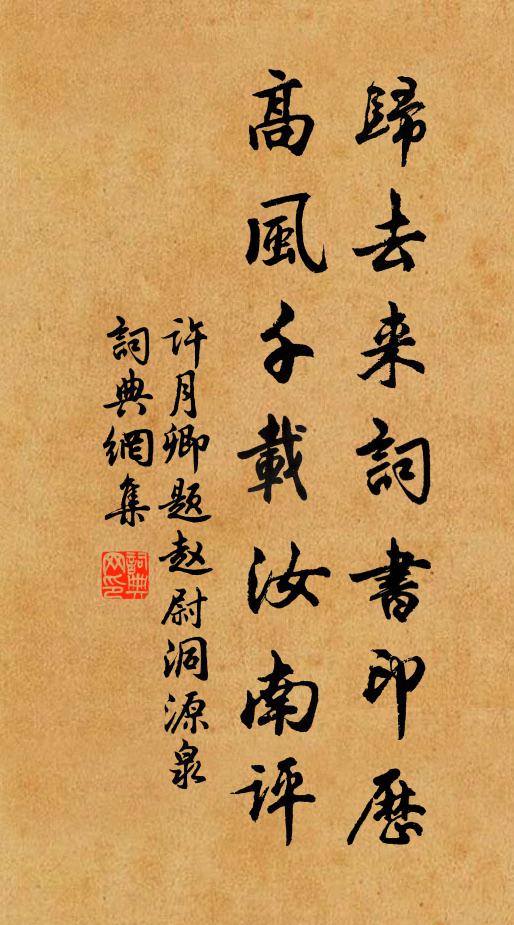 歸去来詞書印歷
高風千載汝南评
许月卿题赵尉洞源泉
詞典網集
詞典网印